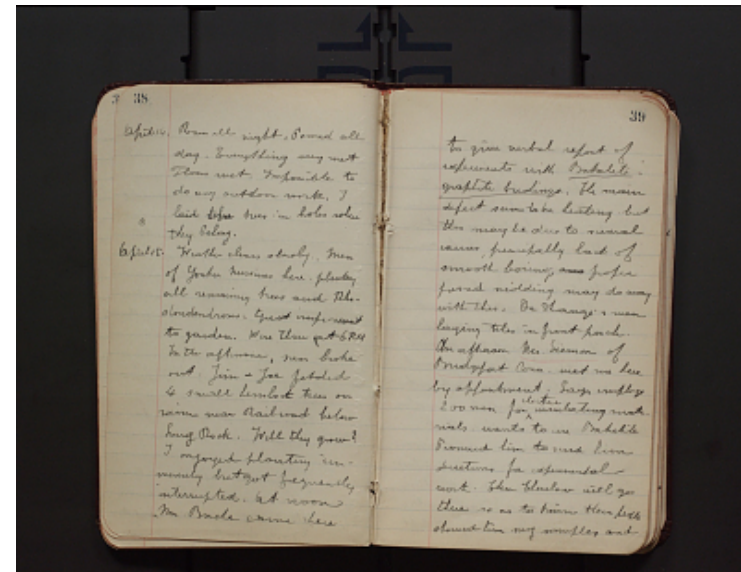 38
April 14. Rain all night. Poured all
day. Everything very wet
Impossible to
do any outdoor work. I
laid trees in holes where
they belong.
April 15. Weather clears slowly. Men
of Yonkers Nurseries here planting
all remaining trees and Rho-
dodendrons. Great improvement
to garden. Were thru at 6 PM
In the afternoon, sun broke
out. Jim & Joe fetched
4 small hemlock trees on
near Railroad below
Rock. Will they grow?
I enjoyed planting im-
mensely but got frequently
interrupted. At noon
Mr. came here
39
to give verbal report of
experiments with Bakelite
graphite bushings. The main
defect seems to be heating but
this may be due to several
causes, principally lack of
smooth boring, proper
may do away
with this. man
laying tiles in front porch.
This afternoon Mr. of
Bridgeport Conn. met me here
by appointment. Says employs
200 men for electric insulating mat-
erials wants to use Bakelite
Promised him to send him
directions for experimental
work. Then will go
there so as to them
showed him my samples and